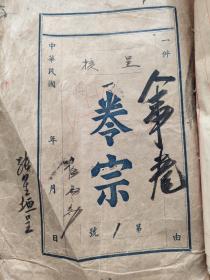 一件
呈
核
全卷
卷宗
第1號
由
中華民國 年 月 日
張星垣呈